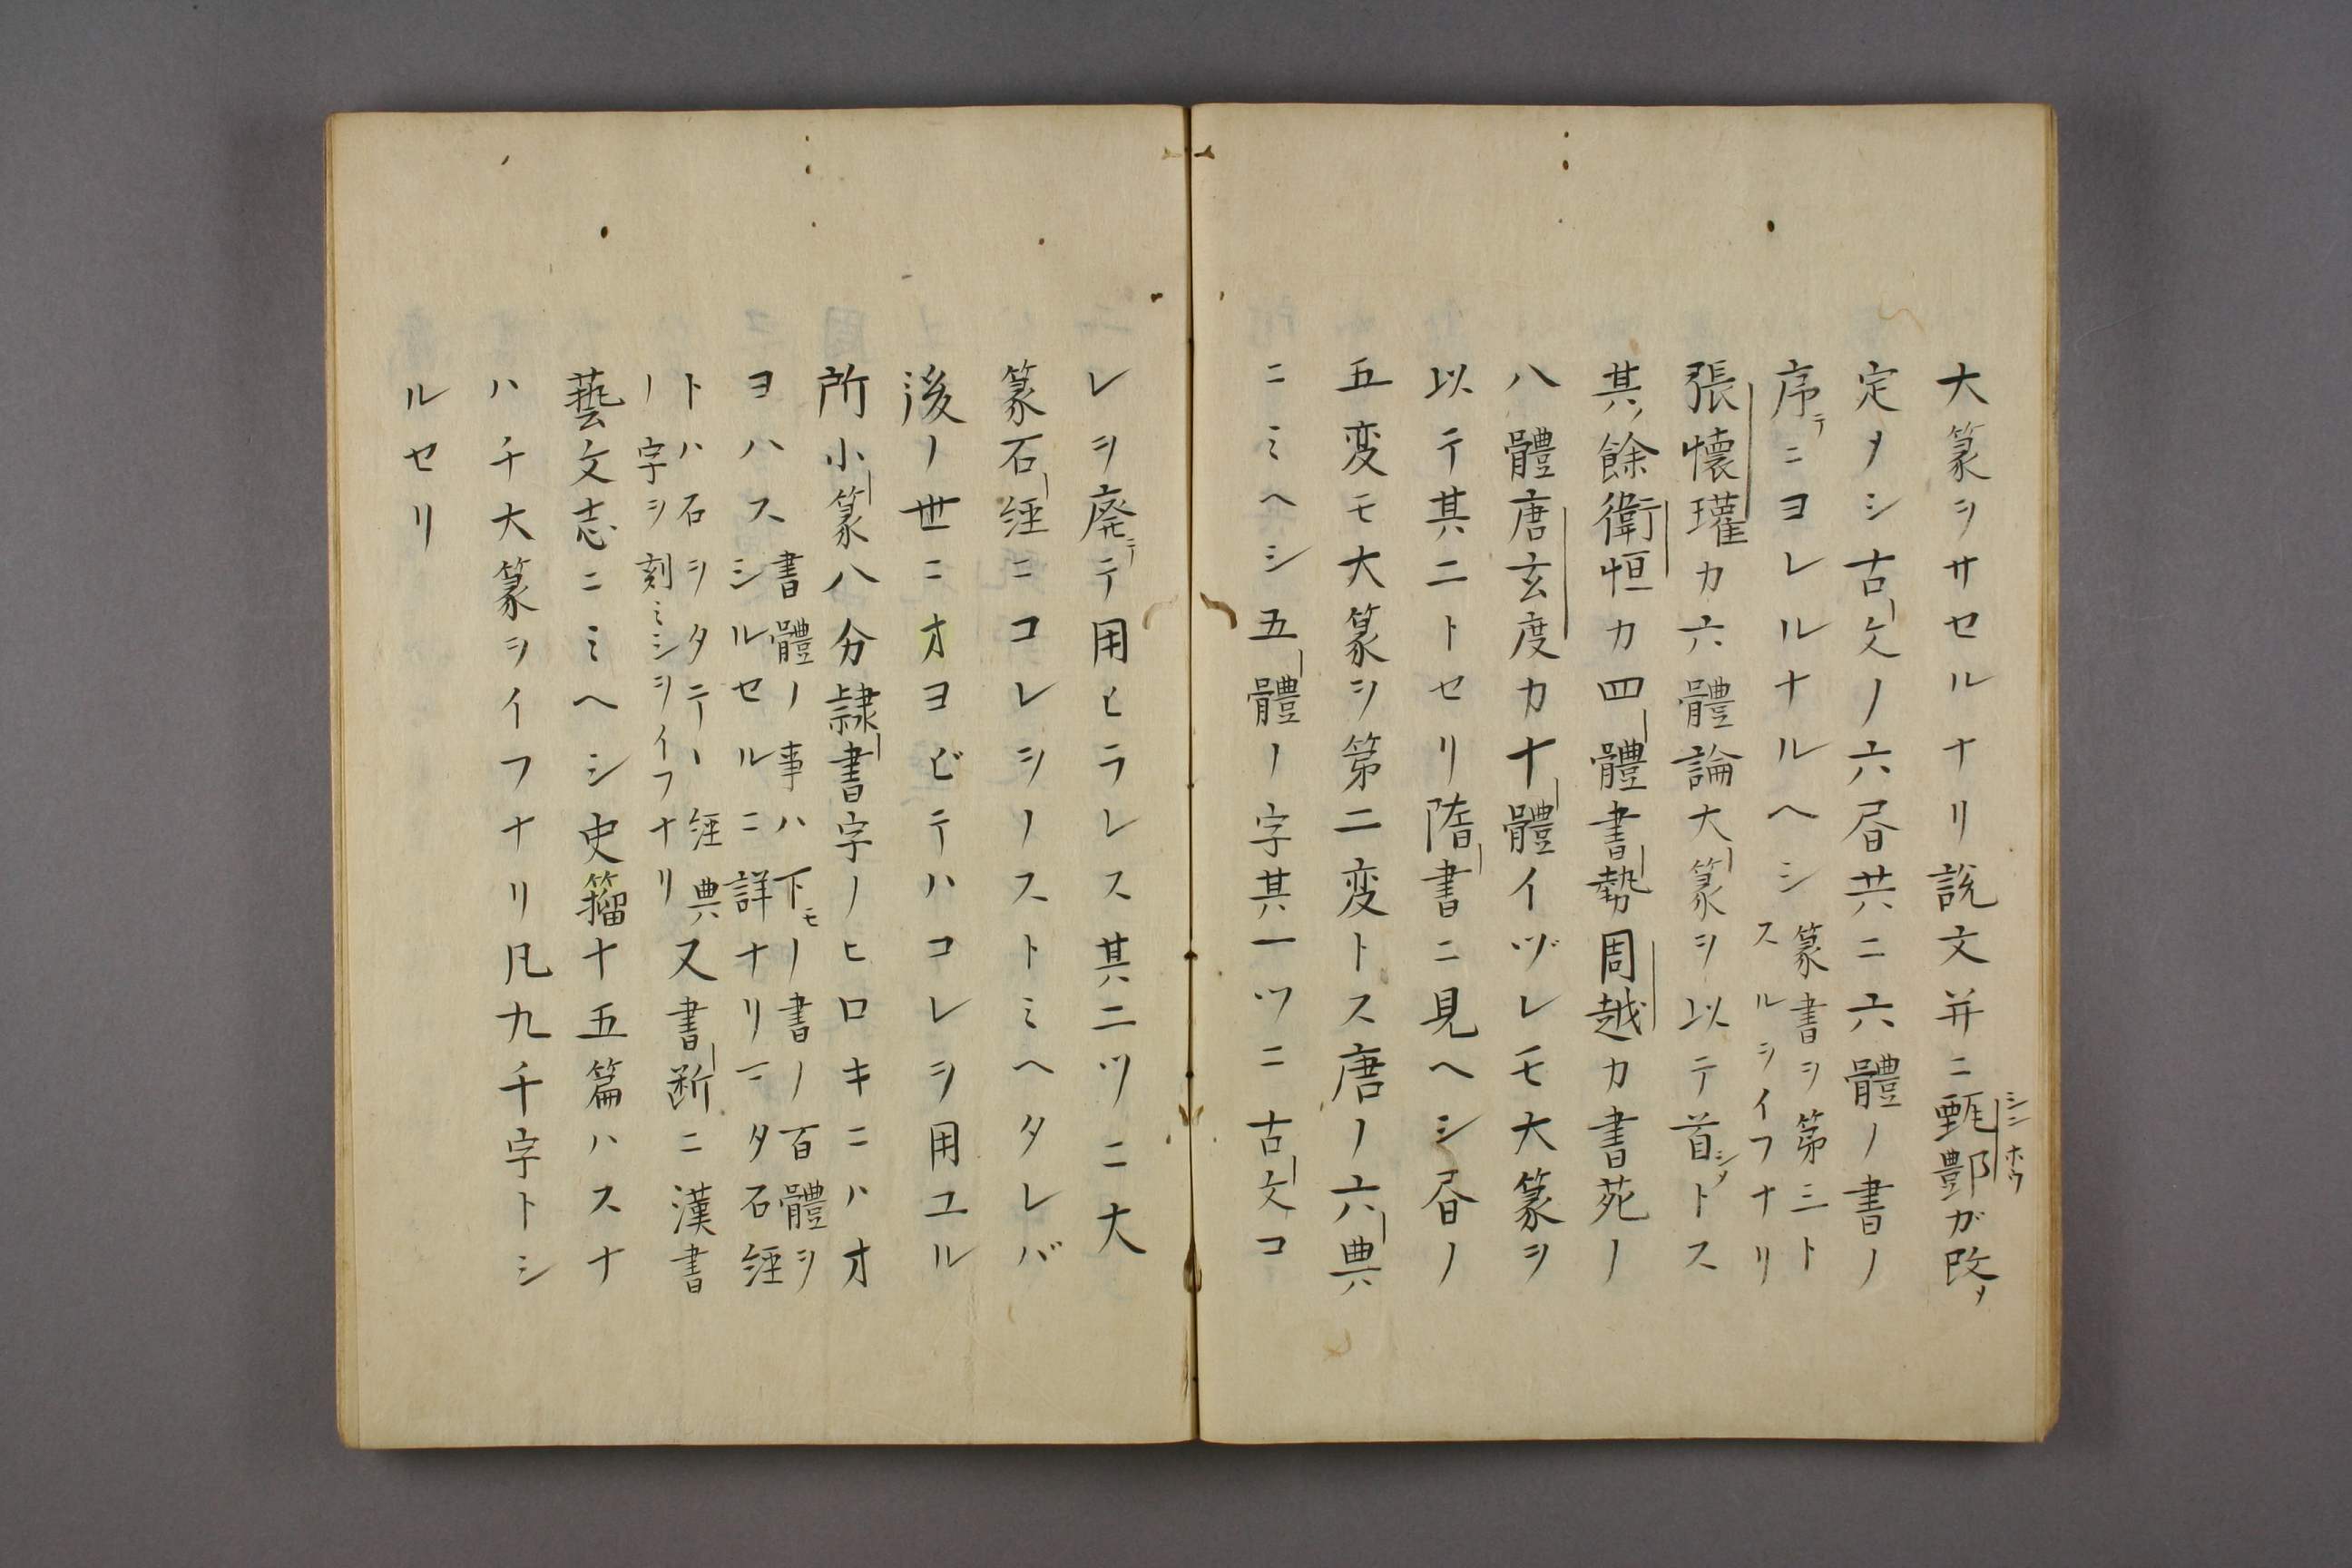 大篆ヲサセルナリ説文并ニ甄酆ガ改メ
シンホウ
定メシ古文ノ六昼共ニ六體ノ書ノ
序テニヨレルナルヘシ
篆書ヲ第三ト
スルヲイフナリ
張懐瓘カ六體論大篆ヲ以テ首シメトス
其ノ餘衛恒カ四體書勢周越カ書苑ノ
八體唐玄度カ十體イヅレモ大篆ヲ
以テ其二トセリ隋書ニ見ヘシ昼ノ
五変モ大篆ヲ第二変トス唐ノ六典
ニミヘシ五體ノ字其一ツニ古文コ
レヲ廃テテ用ヒラレス其二ツニ大
篆石經ニコレヲノストミヘタレバ
後ノ世ニオヨビテハコレヲ用ユル
所小篆八分隷書字ノヒロキニハオ
ヨハス
書體ノ事ハ下モノ書ノ百體ヲ
シルセルニ詳ナリマタ石經
トハ石ヲタテヽ經典
ノ字ヲ刻ミシヲイフナリ
又書断ニ漢書
藝文志ニミヘシ史籀十五篇ハスナ
ハチ大篆ヲイフナリ凡九千字トシ
ルセリ